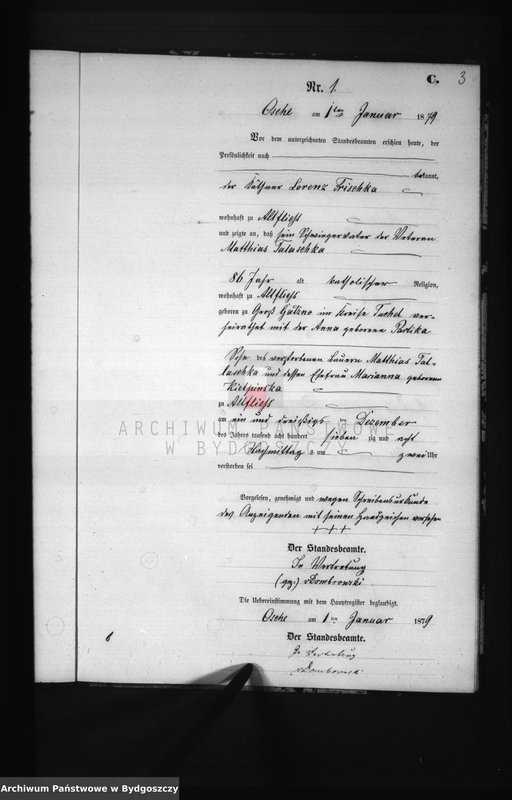 C. 3
Nr. 1.
Osche am 1ten Januar 1879
Vor dem unterzeichneten Standesbeamten erschien heute, der
Persönlichkeit nach
bekannt,
der Käthner Lorenz Frischka
wohnhaft zu Altfließ
und zeigte an, daß sein Schwiegervater der Veteran
Matthias Talaschka
86 Jahr alt katholischer Religion,
wohnhaft zu Altfließ
geboren zu Groß im Kreise Tuchel ver-
heirathet mit der Anna geborenen
Sohn des verstorbenen Bauern Matthias Ta-
laschka und dessen Ehefrau Marianna geborenen
zu Altfließ
am ein und dreißigsten Dezember
des Jahres tausend acht hundert sieben zig und acht
Nachmittags um zwei Uhr
verstorben sei
Vorgelesen, genehmigt und wegen Schreibensunkunde
des Anzeigenden mit seinen Handzeichen versehen
+++
Der Standesbeamte.
In Vertretung
(gez.) vDombrowski
Die Uebereinstimmung mit dem Hauptregister beglaubigt.
Osche am 1ten Januar 1879
Der Standesbeamte.
In Vertretung
vDombrowski
ARCHIWUM PAŃSTWOWE
W BYDGOSZCZY
Archiwum Państwowe w Bydgoszczy